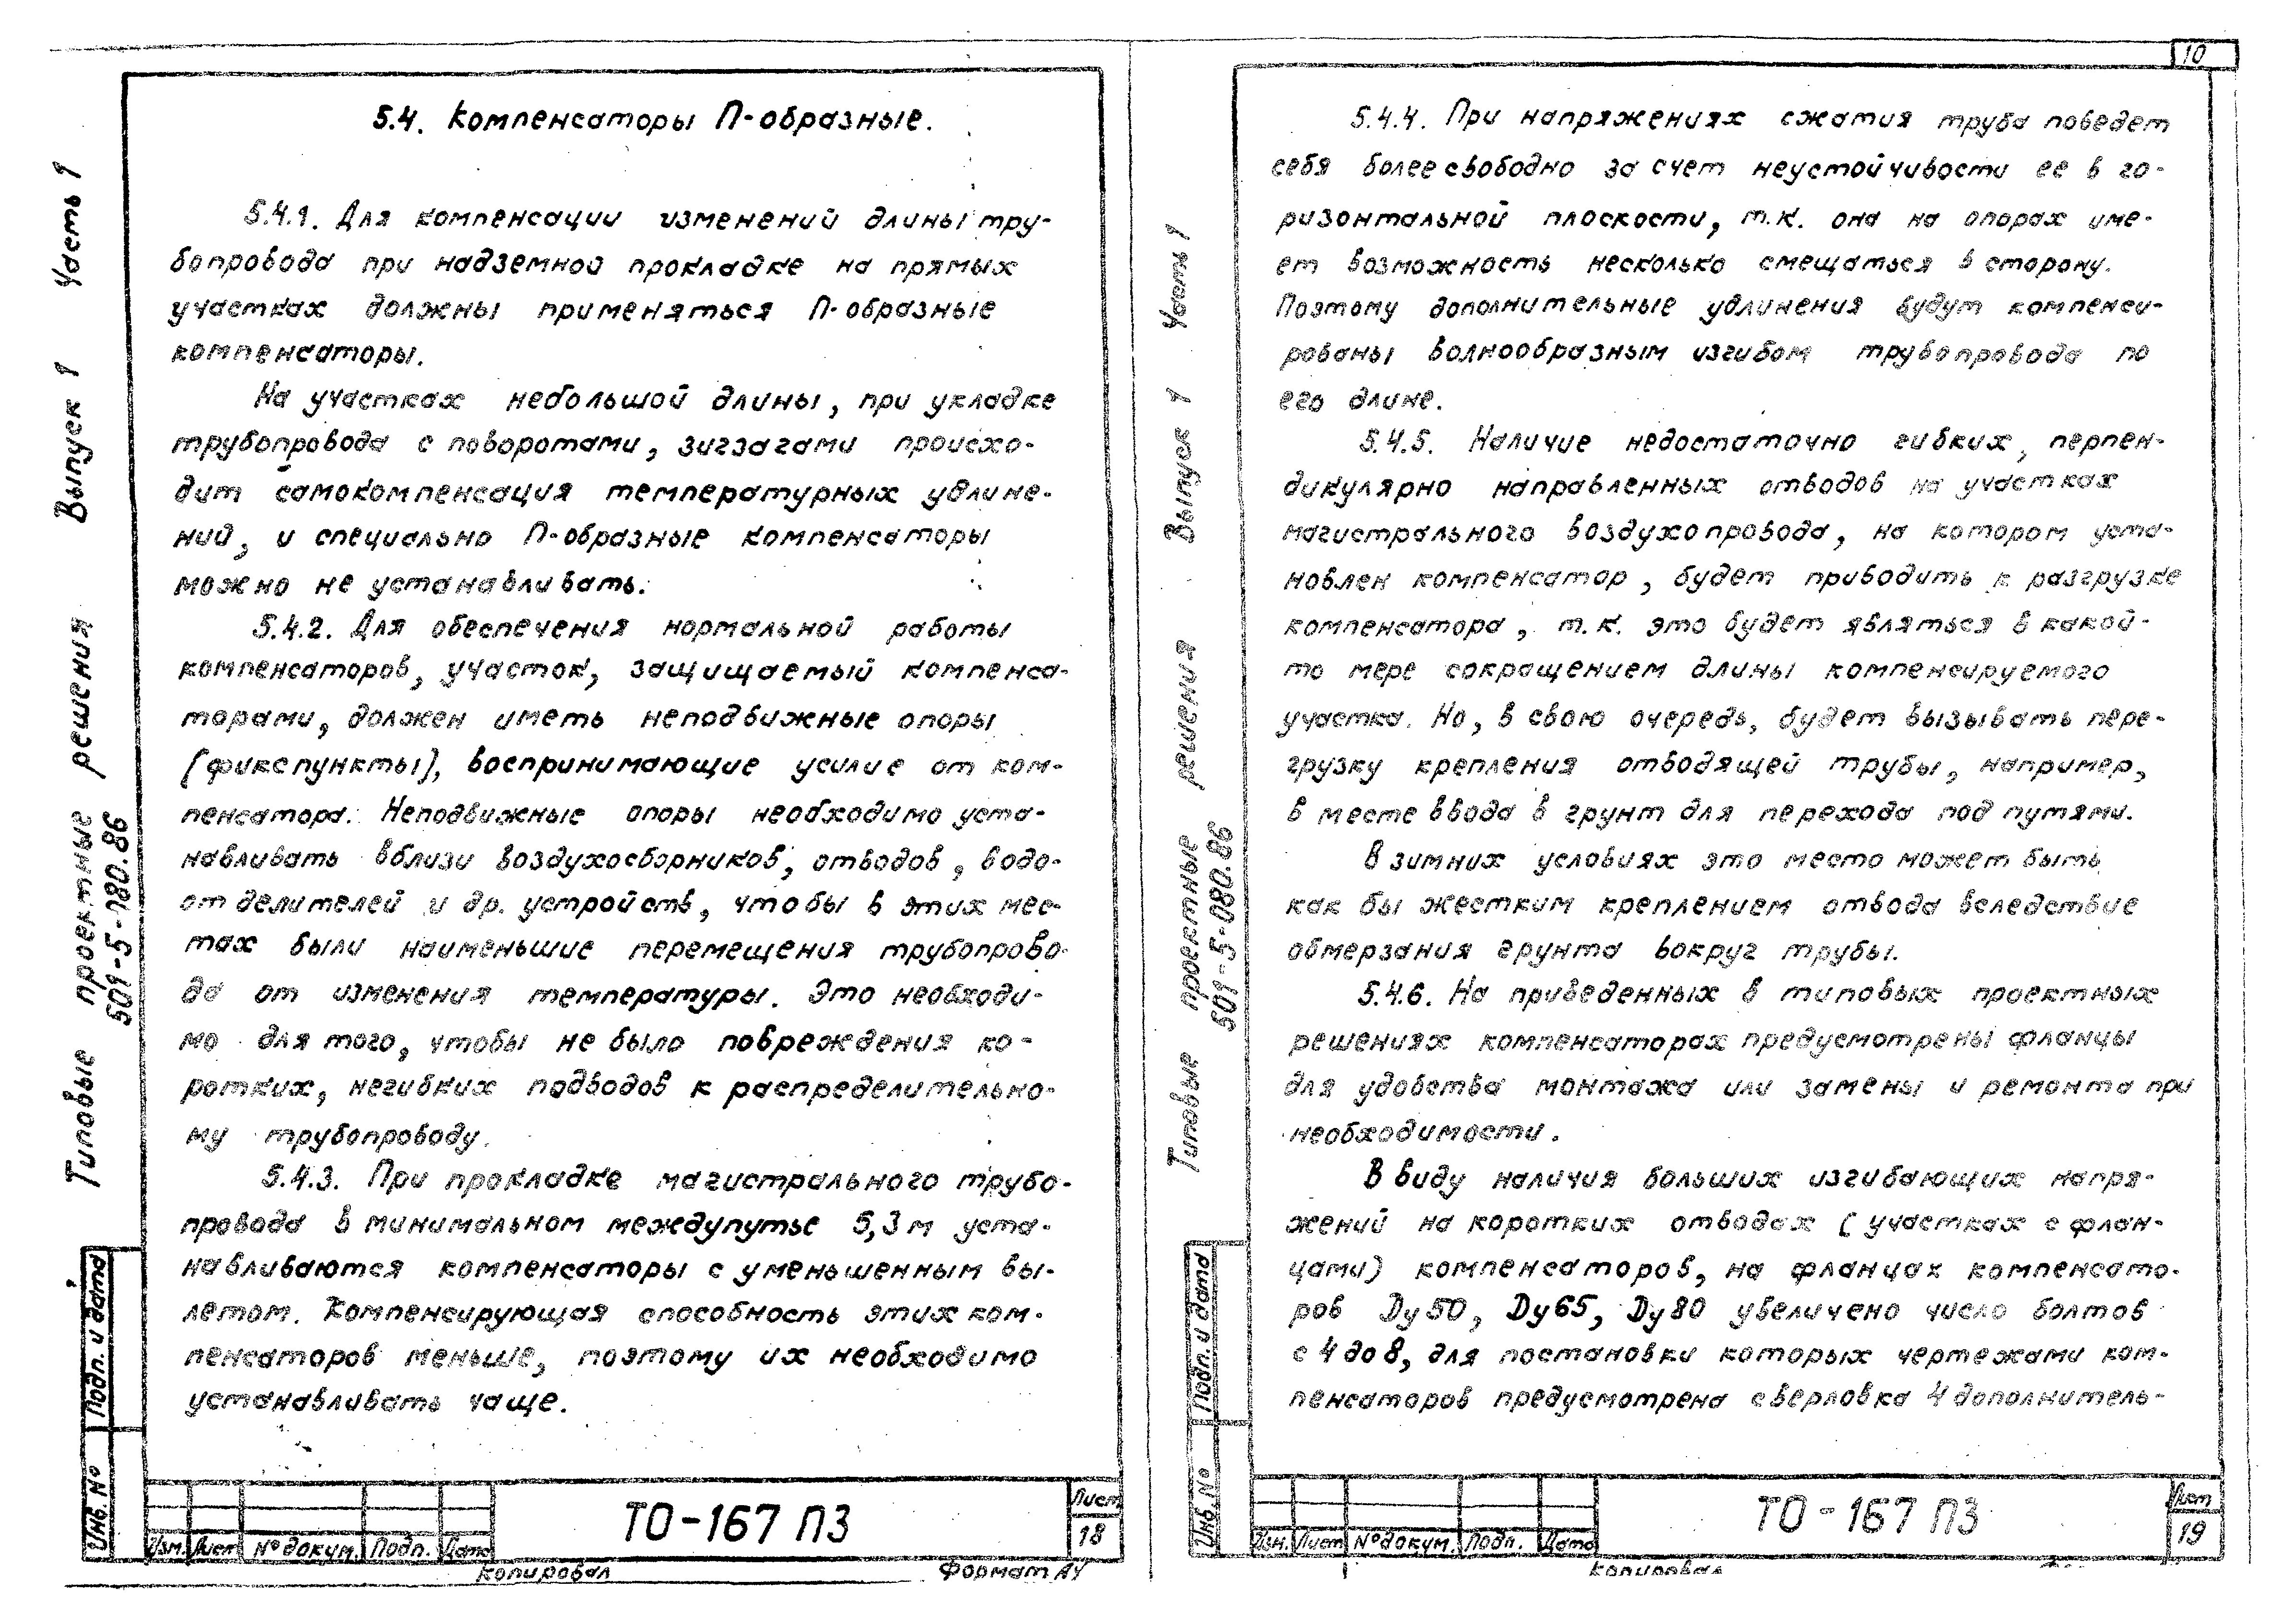 10
5.4. Компенсаторы П-образные.
5.4.1. Для компенсации изменений длины тру-
бопровода при надземной прокладке на прямых
участках должны применяться П-образные
компенсаторы.
На участках небольшой длины, при укладке
трубопровода с поворотами, зигзагами происхо-
дит самокомпенсация температурных удлине-
ний, и специально П-образные компенсаторы
можно не устанавливать.
5.4.2. Для обеспечения нормальной работы
компенсаторов, участок, защищаемый компенса-
торами, должен иметь неподвижные опоры
(фикспункты), воспринимающие усилие от ком-
пенсатора. Неподвижные опоры необходимо уста-
навливать вблизи воздухосборников, отводов, водо-
отделителей и др. устройств, чтобы в этих мес-
тах были наименьшие перемещения трубопрово-
да от изменения температуры. Это необходи-
мо для того, чтобы не было повреждения ко-
ротких, негибких подводов к распределительно-
му трубопроводу.
5.4.3. При прокладке магистрального трубо-
провода в минимальном междупутье 5,3 м уста-
навливаются компенсаторы с уменьшенным вы-
летом. Компенсирующая способность этих ком-
пенсаторов меньше, поэтому их необходимо
устанавливать чаще.
Типовые проектные решения Выпуск 1 Часть 1
501-5-080.86
Подп. и дата
Инв. №
Изм. Лист № докум. Подп. Дата
ТО-167 ПЗ
Лист
18
Копировал
Формат А4
5.4.4. При напряжениях сжатия труба поведет
себя более свободно за счет неустойчивости ее в го-
ризонтальной плоскости, т.к. она на опорах име-
ет возможность несколько смещаться в сторону.
Поэтому дополнительные удлинения будут компенси-
рованы волнообразным изгибом трубопровода по
его длине.
5.4.5. Наличие недостаточно гибких, перпен-
дикулярно направленных отводов на участках
магистрального воздухопровода, на котором уста-
новлен компенсатор, будет приводить к разгрузке
компенсатора, т.к. это будет являться в какой-
то мере сокращением длины компенсируемого
участка. Но, в свою очередь, будет вызывать пере-
грузку крепления отводящей трубы, например,
в месте ввода в грунт для перехода под путями.
В зимних условиях это место может быть
как бы жестким креплением отвода вследствие
обмерзания грунта вокруг трубы.
5.4.6. На приведенных в типовых проектных
решениях компенсаторах предусмотрены фланцы
для удобства монтажа или замены и ремонта при
необходимости.
В виду наличия больших изгибающих напря-
жений на коротких отводах (участках с флан-
цами) компенсаторов, на фланцах компенсато-
ров Ду 50, Ду 65, Ду 80 увеличено число болтов
с 4 до 8, для постановки которых чертежами ком-
пенсаторов предусмотрена сверловка 4 дополнитель-
Типовые проектные решения Выпуск 1 Часть 1
501-5-080.86
Подп. и дата
Инв. №
Изм. Лист № докум. Подп. Дата
ТО-167 ПЗ
Лист
19
Копировал